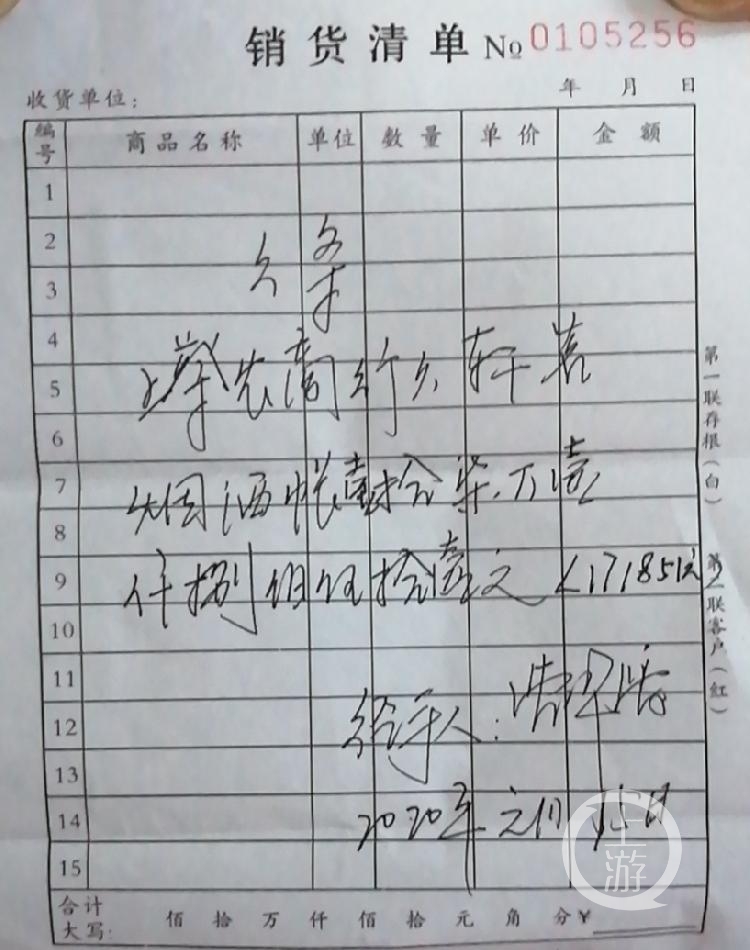 销货清单 № 0105256
收货单位: 年 月 日
编号 商品名称 单位 数量 单价 金额
1
2 欠条
3
4
5 商行欠轩
6
7 烟酒帐壹拾柒万壹
8
9 仟捌佰伍拾壹元 (171851元)
10
11
12 经手人:
13
14 2020年元月 日
15
合计大写: 佰 拾 万 仟 佰 拾 元 角 分 ¥
第一联存根(白) 第二联客户(红)
上游